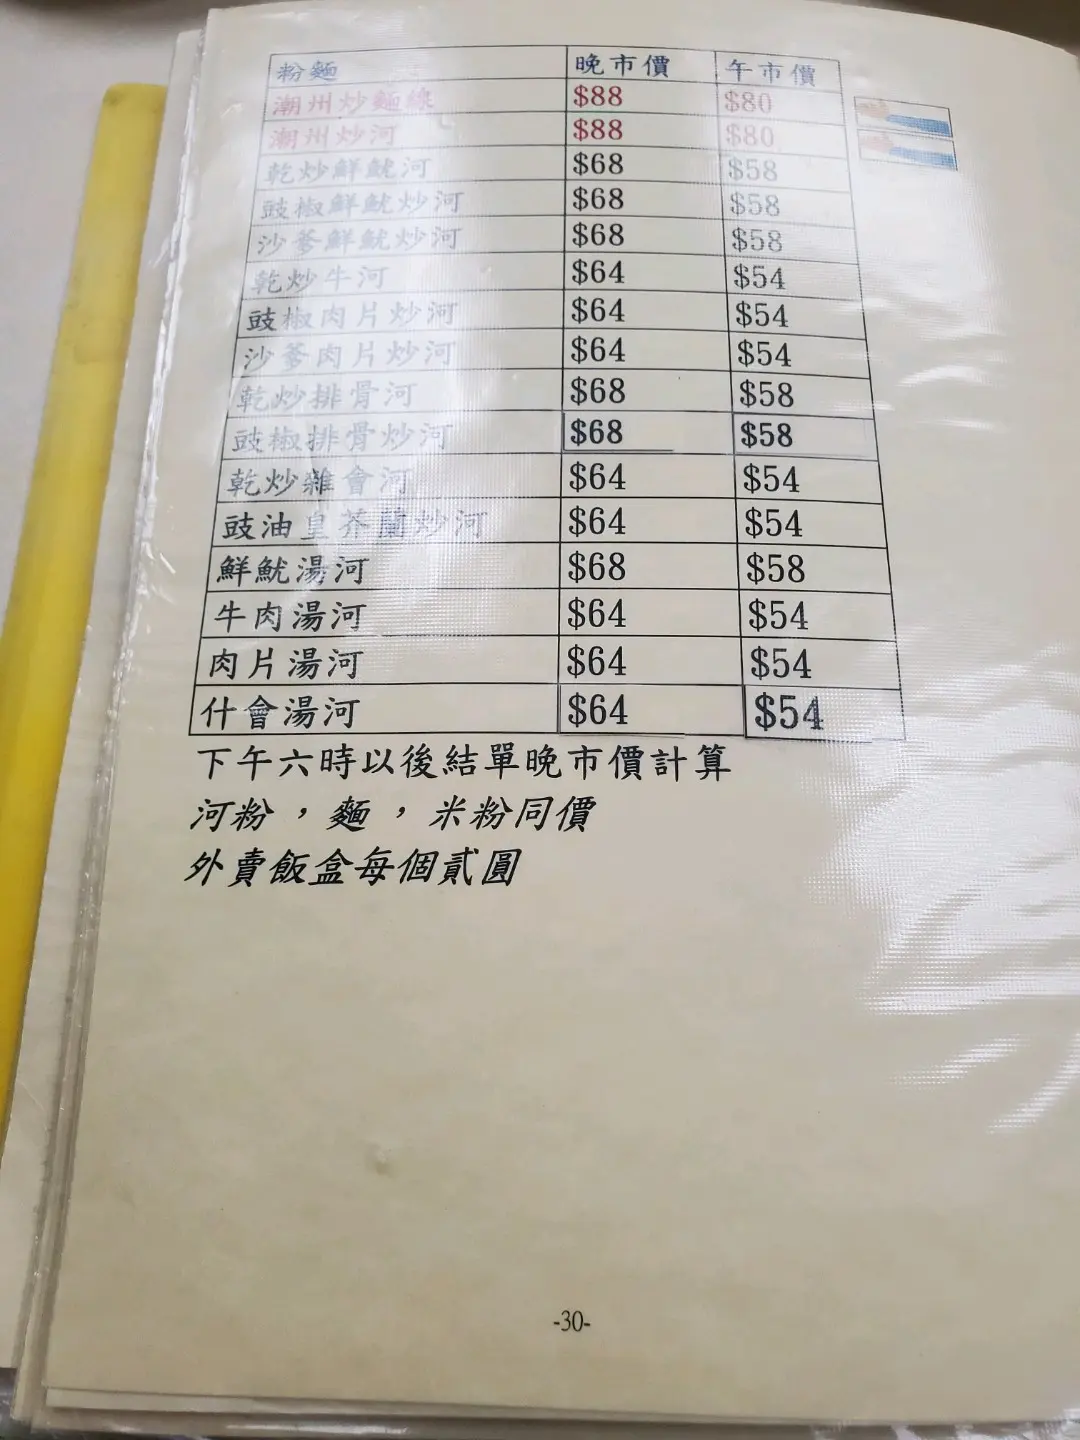 粉麵 晚市價 午市價
潮州炒麵線 $88 $80
潮州炒河 $88 $80
乾炒鮮魷河 $68 $58
豉椒鮮魷炒河 $68 $58
沙爹鮮魷炒河 $68 $58
乾炒牛河 $64 $54
豉椒肉片炒河 $64 $54
沙爹肉片炒河 $64 $54
乾炒排骨河 $68 $58
豉椒排骨炒河 $68 $58
乾炒雜會河 $64 $54
豉油皇芥蘭炒河 $64 $54
鮮魷湯河 $68 $58
牛肉湯河 $64 $54
肉片湯河 $64 $54
什會湯河 $64 $54
下午六時以後結單晚市價計算
河粉，麵，米粉同價
外賣飯盒每個貳圓
-30-